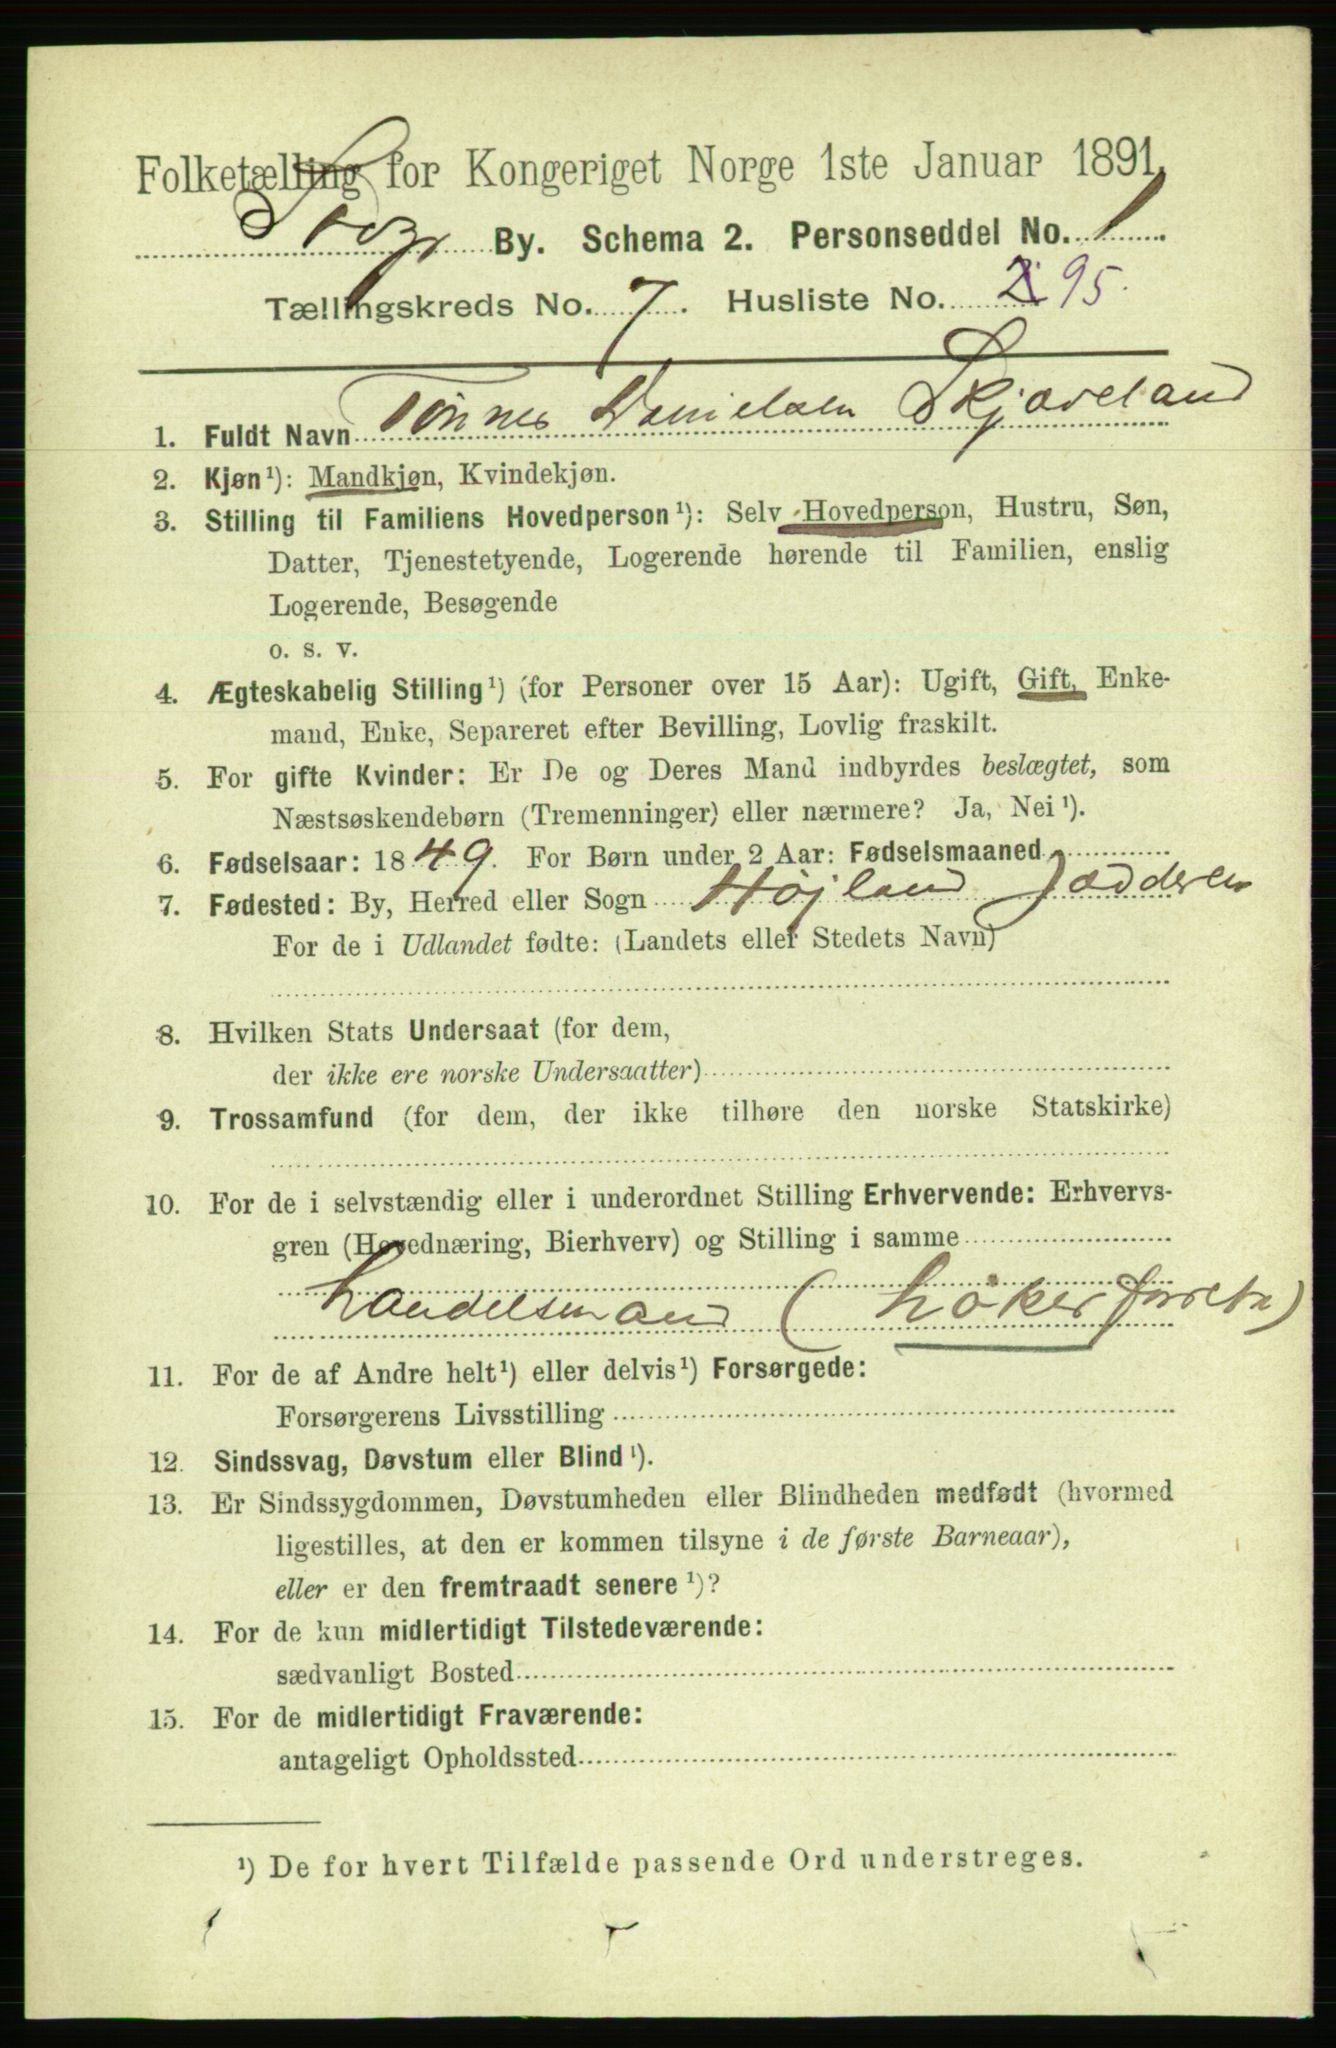 Folketælling for Kongeriget Norge 1ste Januar 1891.
Stvgr By. Schema 2. Personseddel No. 1
Tællingskreds No. 7. Husliste No. 95.
1. Fuldt Navn Tönnes Danielsen Skjæveland
2. Kjøn¹): Mandkjøn, Kvindekjøn.
3. Stilling til Familiens Hovedperson¹): Selv Hovedperson, Hustru, Søn,
Datter, Tjenestetyende, Logerende hørende til Familien, enslig
Logerende, Besøgende
o. s. v.
4. Ægteskabelig Stilling¹) (for Personer over 15 Aar): Ugift, Gift, Enke-
mand, Enke, Separeret efter Bevilling, Lovlig fraskilt.
5. For gifte Kvinder: Er De og Deres Mand indbyrdes beslægtet, som
Næstsøskendebørn (Tremenninger) eller nærmere? Ja, Nei¹).
6. Fødselsaar: 1849. For Børn under 2 Aar: Fødselsmaaned
7. Fødested: By, Herred eller Sogn Höjland Jædderen
For de i Udlandet fødte: (Landets eller Stedets Navn)
8. Hvilken Stats Undersaat (for dem,
der ikke ere norske Undersaatter)
9. Trossamfund (for dem, der ikke tilhøre den norske Statskirke)
10. For de i selvstændig eller i underordnet Stilling Erhvervende: Erhvervs-
gren (Hovednæring, Bierhverv) og Stilling i samme
handelsmand (hökerforretn)
11. For de af Andre helt¹) eller delvis¹) Forsørgede:
Forsørgerens Livsstilling
12. Sindssvag, Døvstum eller Blind¹).
13. Er Sindssygdommen, Døvstumheden eller Blindheden medfødt (hvormed
ligestilles, at den er kommen tilsyne i de første Barneaar),
eller er den fremtraadt senere¹)?
14. For de kun midlertidigt Tilstedeværende:
sædvanligt Bosted
15. For de midlertidigt Fraværende:
antageligt Opholdssted
¹) De for hvert Tilfælde passende Ord understreges.